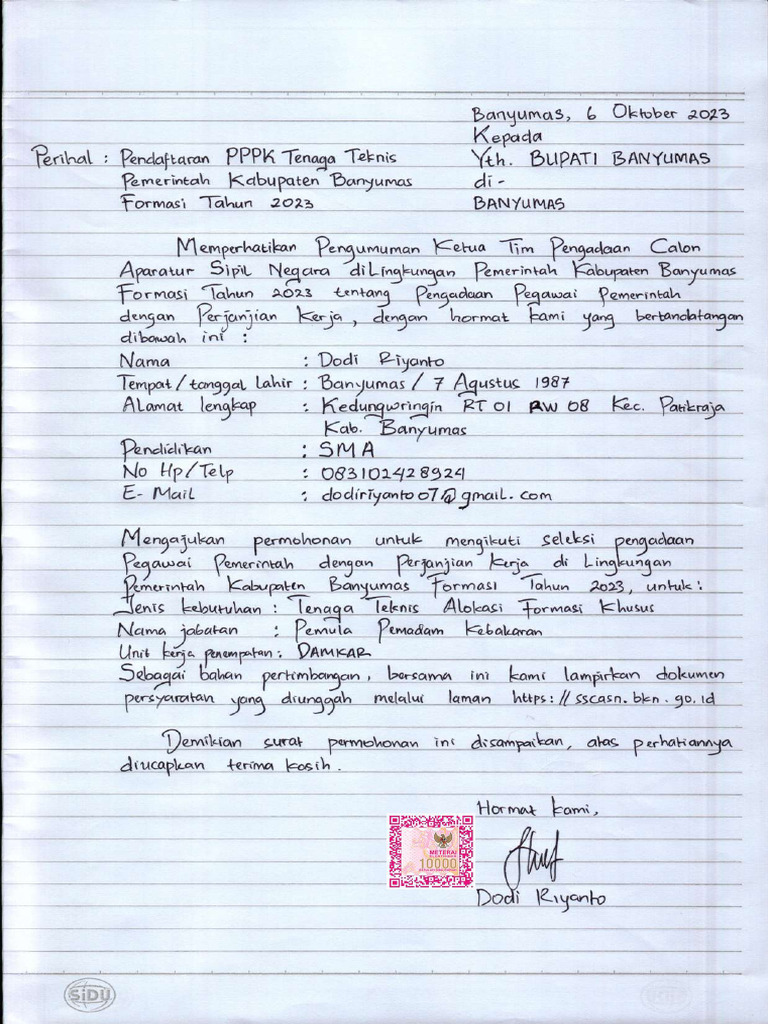 Banyumas, 6 Oktober 2023
Kepada
Perihal : Pendaftaran PPPK Tenaga Teknis Yth. BUPATI BANYUMAS
Pemerintah Kabupaten Banyumas di-
Formasi Tahun 2023 BANYUMAS
Memperhatikan Pengumuman Ketua Tim Pengadaan Calon
Aparatur Sipil Negara diLingkungan Pemerintah Kabupaten Banyumas
Formasi Tahun 2023 tentang Pengadaan Pegawai Pemerintah
dengan Perjanjian Kerja, dengan hormat kami yang bertandatangan
dibawah ini :
Nama : Dodi Riyanto
Tempat/tanggal Lahir : Banyumas / 7 Agustus 1987
Alamat lengkap : Kedungwringin RT 01 RW 08 Kec. Patikraja
Kab. Banyumas
Pendidikan : SMA
No Hp/Telp : 083102428924
E-Mail : dodiriyanto07@gmail.com
Mengajukan permohonan untuk mengikuti seleksi pengadaan
Pegawai Pemerintah dengan Perjanjian Kerja di Lingkungan
Pemerintah Kabupaten Banyumas Formasi Tahun 2023, untuk :
Jenis kebutuhan : Tenaga Teknis Alokasi Formasi Khusus
Nama jabatan : Pemula Pemadam Kebakaran
Unit kerja penempatan : DAMKAR
Sebagai bahan pertimbangan, bersama ini kami lampirkan dokumen
persyaratan yang diunggah melalui laman https://sscasn.bkn.go.id
Demikian surat permohonan ini disampaikan, atas perhatiannya
diucapkan terima kasih.
Hormat kami,
METERAI
10000
Dodi Riyanto
SiDU